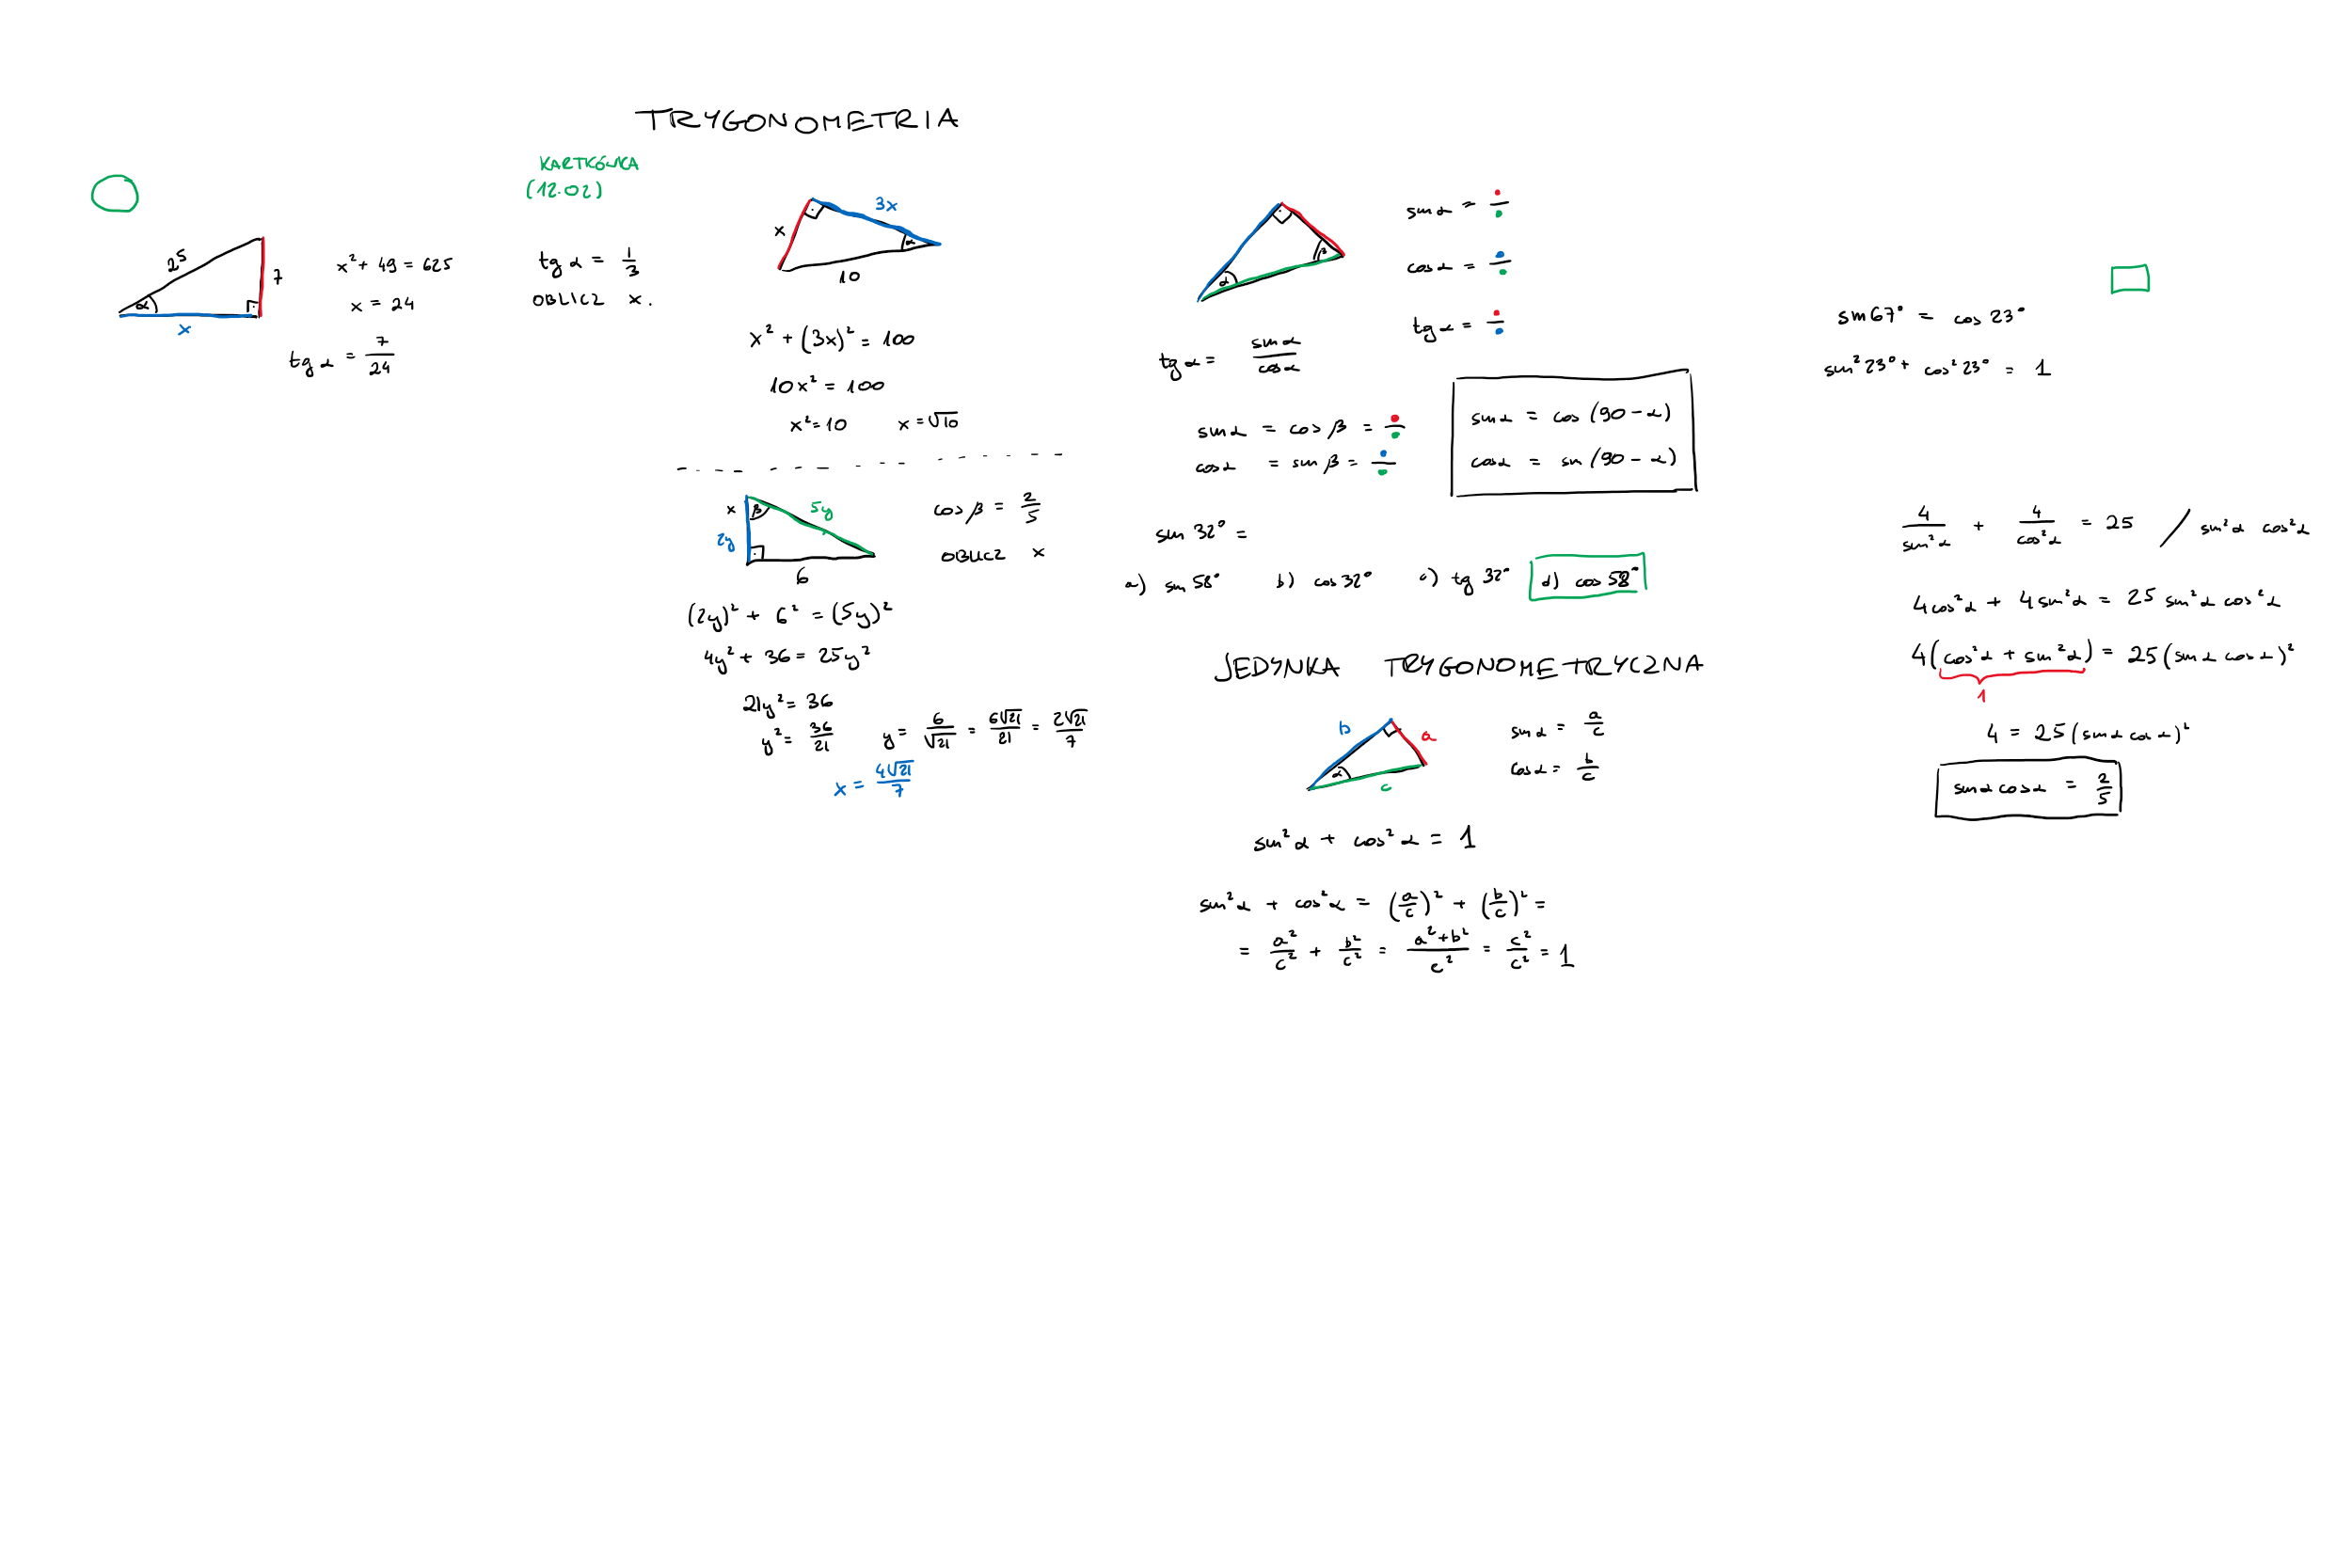 TRYGONOMETRIA
KARTKÓWKA
(12.02)
25
7
α
x
x² + 49 = 625
x = 24
tg α = 7/24
tg α = 1/3
OBLICZ x.
x
3x
α
10
x² + (3x)² = 100
10x² = 100
x² = 10 x = √10
x
β
5y
2y
6
cos β = 2/5
OBLICZ x
(2y)² + 6² = (5y)²
4y² + 36 = 25y²
21y² = 36
y² = 36/21 y = 6/√21 = 6√21/21 = 2√21/7
x = 4√21/7
α
β
sin α =
cos α =
tg α =
tg α = sin α/cos α
sin α = cos β =
cos α = sin β =
sin α = cos (90 - α)
cos α = sin (90 - α)
sin 32° =
a) sin 58° b) cos 32° c) tg 32° d) cos 58°
JEDYNKA TRYGONOMETRYCZNA
b
a
α
c
sin α = a/c
cos α = b/c
sin² α + cos² α = 1
sin² α + cos² α = (a/c)² + (b/c)² =
= a²/c² + b²/c² = a²+b²/c² = c²/c² = 1
sin 67° = cos 23°
sin² 23° + cos² 23° = 1
4/sin² α + 4/cos² α = 25 / sin² α cos² α
4 cos² α + 4 sin² α = 25 sin² α cos² α
4 (cos² α + sin² α) = 25 (sin α cos α)²
1
4 = 25 (sin α cos α)²
sin α cos α = 2/5